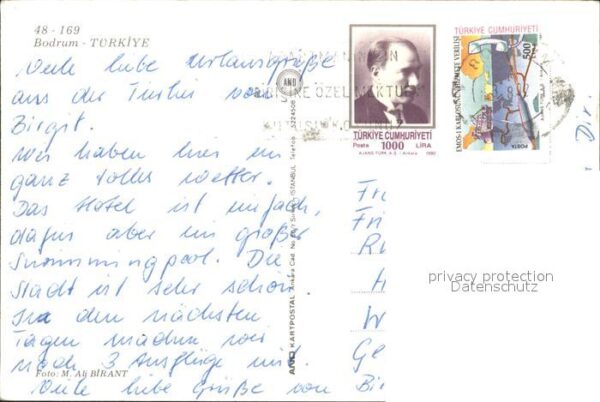 48 - 169
Bodrum - TÜRKİYE
Viele liebe Urlaubsgrüße
aus der Türkei von
Birgit.
Wir haben hier ein
ganz tolles Wetter.
Das Hotel ist einfach,
dafür aber ein großer
Swimmingpool. Die
Stadt ist sehr schön.
In den nächsten
Tagen machen wir
noch 3 Ausflüge mit.
Viele liebe Grüße von Bir
Foto: M. Ali BİRANT
AND KARTPOSTAL Ankara Cad. No. İSTANBUL Telefon
AND
TÜRKİYE CUMHURİYETİ
Posta 1000 LİRA
AJANS-TÜRK A.Ş. - Ankara 1992
TÜRKİYE CUMHURİYETİ
500
POSTA
Dir.
Fr
Fri
H
W
Ge
privacy protection
Datenschutz